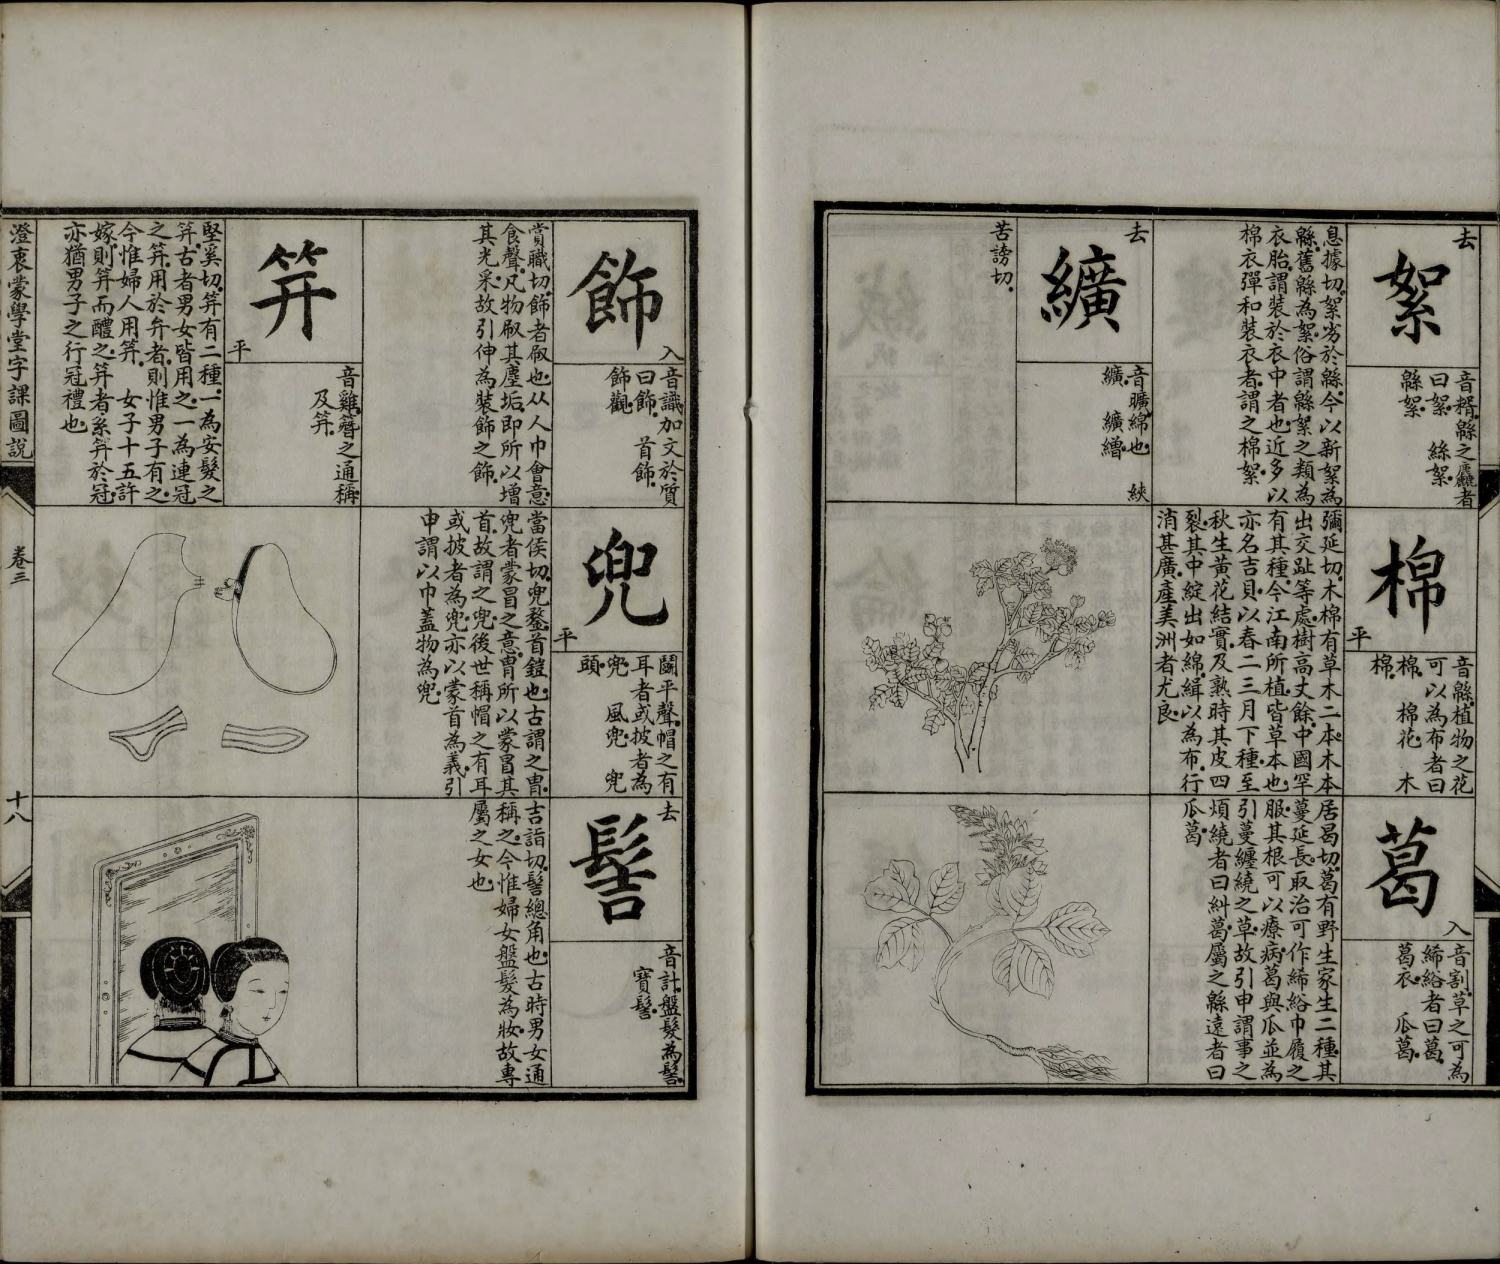 去
絮
音糈緜之麤者
曰絮　絲絮
緜絮
息據切絮劣於緜今以新絮為
緜舊緜為絮俗謂緜絮之類為
衣胎謂裝於衣中者也近多以
棉衣彈和裝衣者謂之棉絮
去
纊
音曠綿也　絖
纊　纊繒
苦謗切
棉
平
音緜植物之花
可以為布者曰
棉　棉花　木
棉
彌延切木棉有草木二本木本
出交趾等處樹高丈餘中國罕
有其種今江南所植皆草本也
亦名吉貝以春二三月下種至
秋生黃花結實及熟時其皮四
裂其中綻出如綿緝以為布行
消甚廣產美洲者尤良
葛
入
音割草之可為
絺綌者曰葛
葛衣　瓜葛
居曷切葛有野生家生二種其
蔓延長取治可作絺綌巾履之
服其根可以療病葛與瓜並為
引蔓纏繞之草故引申謂事之
煩繞者曰糾葛屬之緜遠者曰
瓜葛
飾
入
音識加文於質
曰飾　首飾
飾觀
賞職切飾者㕞也从人巾會意
食聲凡物㕞其塵垢即所以增
其光采故引伸為裝飾之飾
笄
平
音雞簪之通稱
及笄
堅奚切笄有二種一為安髮之
笄古者男女皆用之一為連冠
之笄用於弁者則惟男子有之
今惟婦人用笄　女子十五許
嫁則笄而醴之笄者系笄於冠
亦猶男子之行冠禮也
兜
平
鬬平聲帽之有
耳者或披者為
兜　風兜　兜
頭
當侯切兜鍪首鎧也古謂之冑
兜者蒙冒之意冑所以蒙冒其
首故謂之兜後世稱帽之有耳
或披者為兜亦以蒙首為義引
申謂以巾蓋物為兜
去
髻
音計盤髮為髻
寶髻
吉詣切髻總角也古時男女通
稱之今惟婦女盤髮為妝故專
屬之女也
澄衷蒙學堂字課圖說
卷三
十八